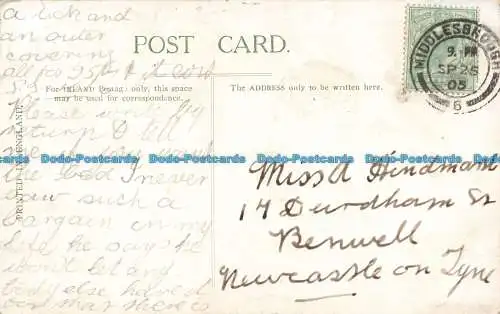 a tick and
an outer
covering
all for 25/- & it cost
POST CARD.
For INLAND Postage only, this space
may be used for correspondence.
The ADDRESS only to be written here.
PRINTED IN ENGLAND.
MIDDLESBROUGH
9. PM
SP 26
05
6
Please write by
return & tell
me if you want
the bed I never
saw such a
bargain in my
life he says he
won't let any
body else have it
Miss A Hindmarsh
14 Durdham St
Benwell
Newcastle on Tyne
Dodo-Postcards Dodo-Postcards Dodo-Postcards Dodo-Postcards Dodo-Postcards